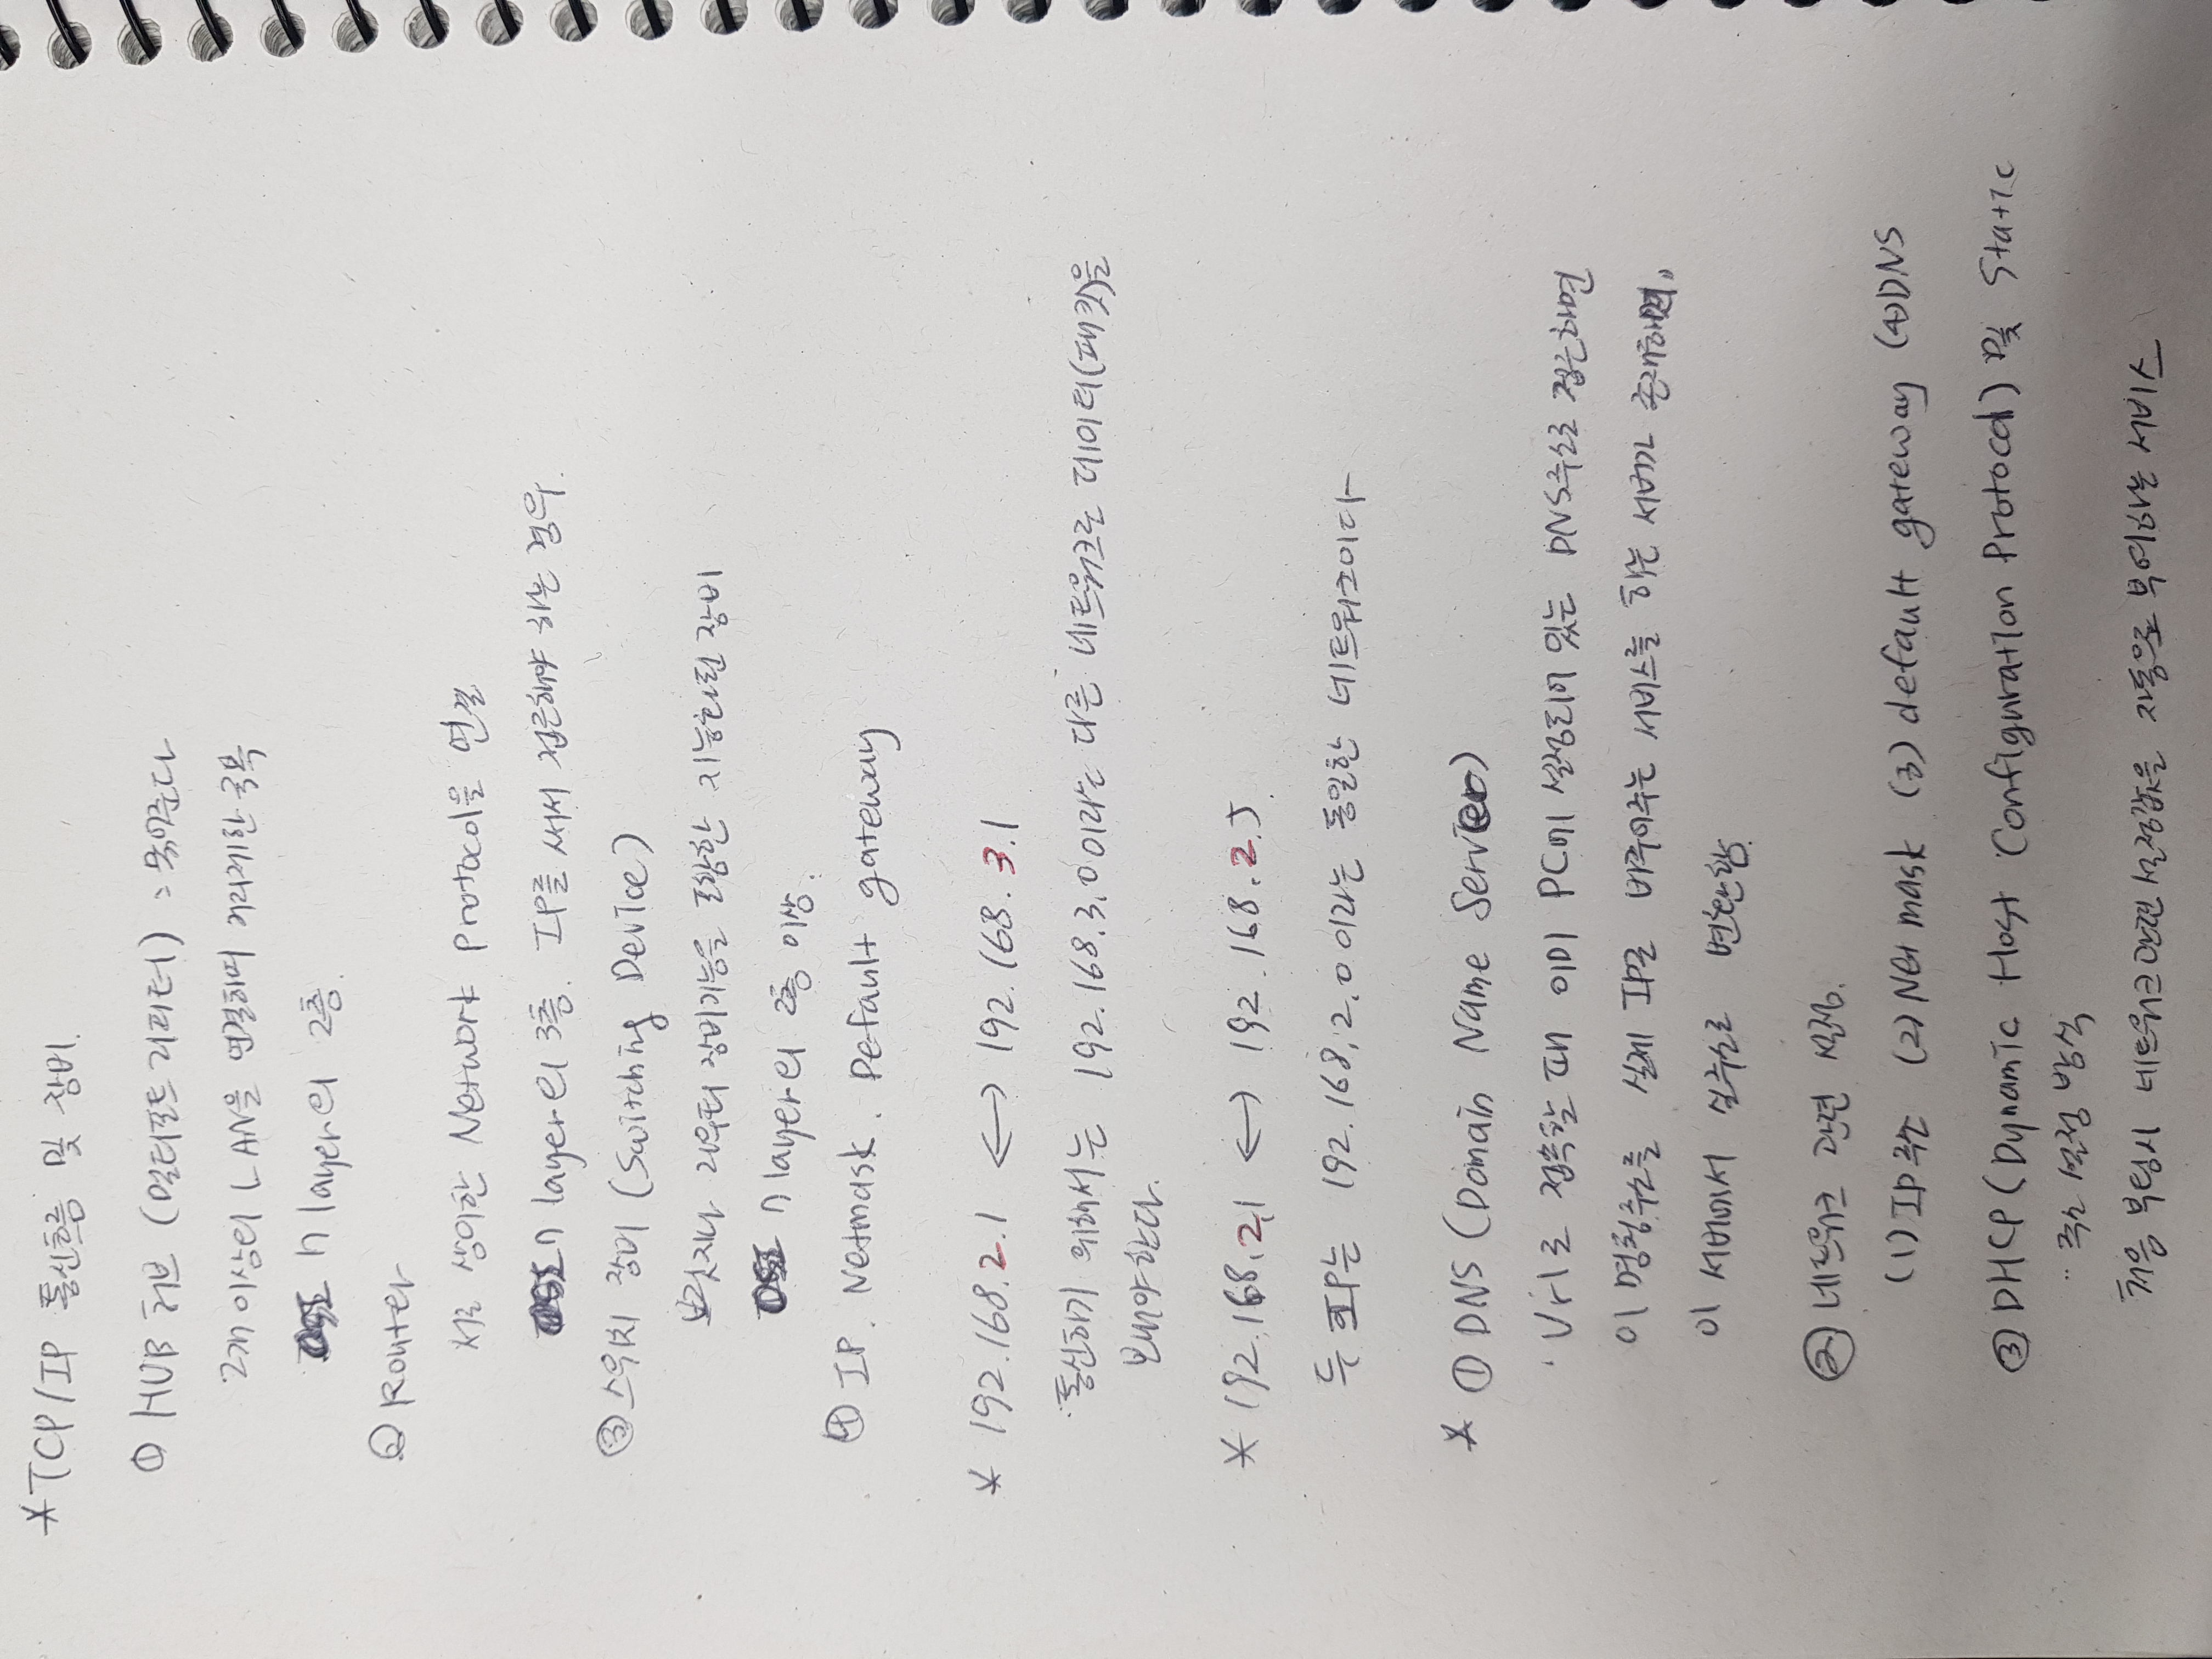 * TCP/IP 통신흐름 및 장비.
① HUB 허브 (멀티포트 리피터) : 묶어준다
2개 이상의 LAN을 연결하며 거리제한 극복
n layer의 2층.
② Router
서로 상이한 Network Protocol을 연결
n layer의 3층. IP를 써서 접근해야 하는 경우.
③ 스위치 장비 (Switching Device)
브릿지나 라우터 장비기능을 포함한 지능화된 장비
n layer의 2층 이상.
④ IP. Netmask. Default gateway
* 192.168.2.1 <-> 192.168.3.1
통신하기 위해서는 192.168.3.0이라는 다른 네트워크로 데이터(패킷)을
보내야한다.
* 192.168.2.1 <-> 192.168.2.5.
두 IP는 192.168.2.0이라는 동일한 네트워크이다
* ① DNS (Domain Name Server)
Url로 접속할 때 이미 PC에 설정되어 있는 DNS주소로 접근하면
이 명칭주소를 실제 IP로 바꾸어주는 서비스를 하는 서버가 존재하며,
이 서버에서 실주소로 변환함.
② 네트워크 관련 설정.
(1) IP주소 (2) Net mask (3) default gateway (4) DNS
③ DHCP (Dynamic Host Configuration Protocol) 및 Static
주소 설정 방식
처음 부팅시 네트워크관련 설정값을 자동으로 부여하는 서비스